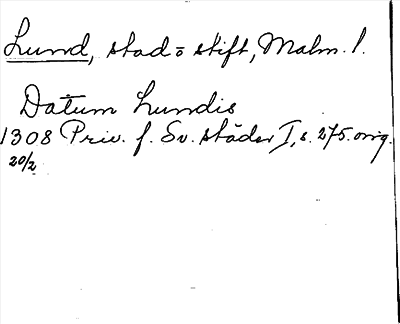 Lund, stad o stift, Malm. l.
Datum Lundis
1308 Priv. f. Sv. städer I, s. 275. orig.
20/2